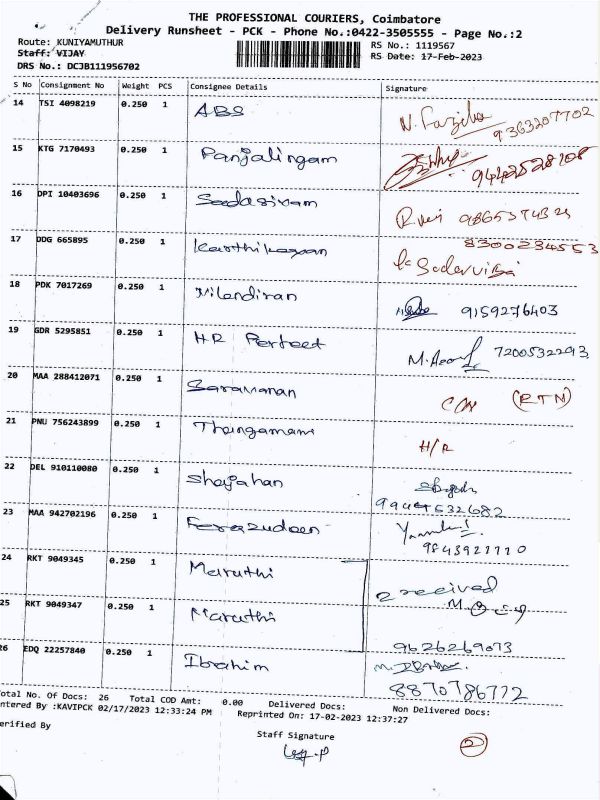 THE PROFESSIONAL COURIERS, Coimbatore
Delivery Runsheet - PCK - Phone No.:0422-3505555 - Page No.:2
Route: KUNIYAMUTHUR RS No.: 1119567
Staff: VIJAY RS Date: 17-Feb-2023
DRS No.: DCJB111956702
S No Consignment No Weight PCS Consignee Details Signature
14 TSI 4098219 0.250 1 ABS N. Fazila 9363207702
15 KTG 7170493 0.250 1 Panjalingam 9442528108
16 DPI 10403696 0.250 1 Sadasivam
17 DDG 665895 0.250 1 Karthikayan 8300234553
18 PDK 7017269 0.250 1 Nilandiran 9159276403
19 GDR 5295851 0.250 1 HR Perfeet 7200532293
20 MAA 288412071 0.250 1 Saravanan (RTN)
21 PNU 756243899 0.250 1 Thangamani H/R
22 DEL 910110080 0.250 1 Shajahan
23 MAA 942702196 0.250 1 Ferozudeen
24 RKT 9049345 0.250 1 Maruthi 2 received
25 RKT 9049347 0.250 1 Maruthi 9626269073
26 EDQ 22257840 0.250 1 Ibrahim 8870786772
Total No. Of Docs: 26 Total COD Amt: 0.00 Delivered Docs: Non Delivered Docs:
Entered By :KAVIPCK 02/17/2023 12:33:24 PM Reprinted On: 17-02-2023 12:37:27
Verified By
Staff Signature
2